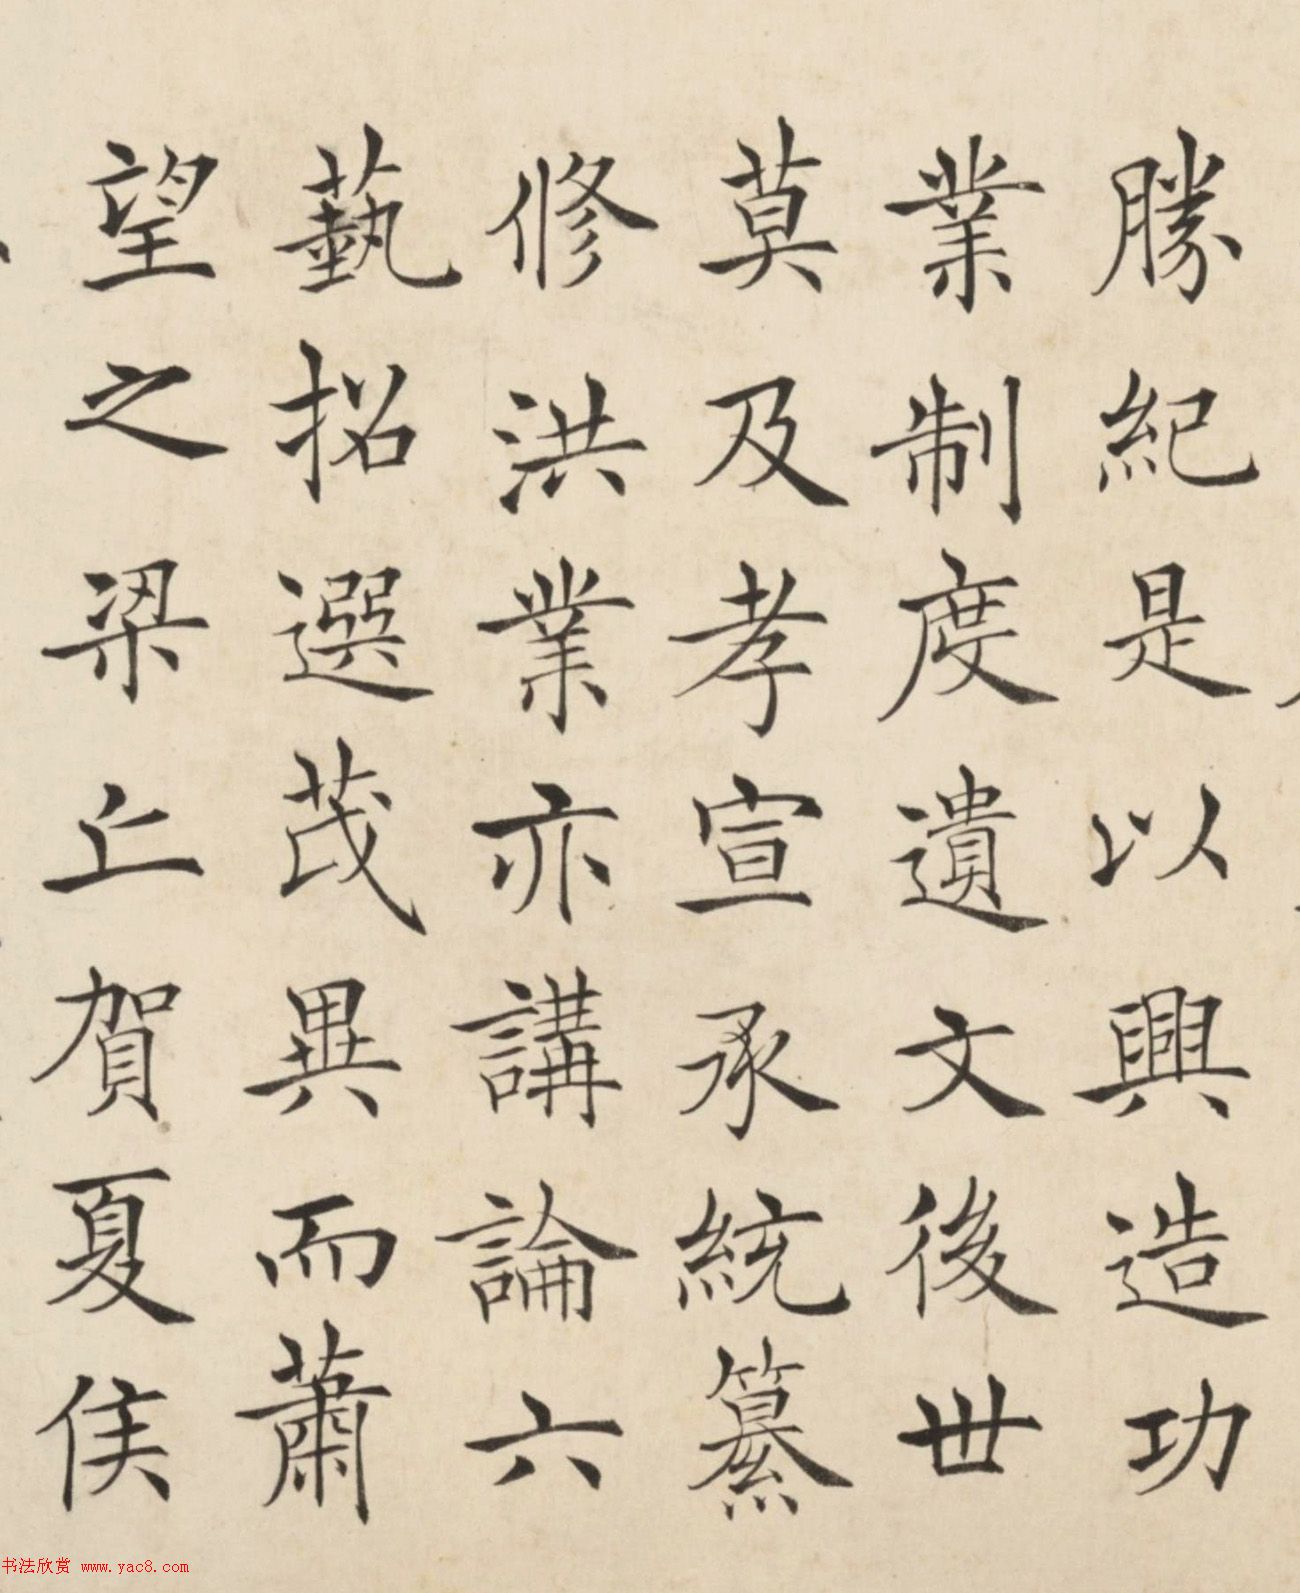 勝紀是以興造功
業制度遺文後世
莫及孝宣承統纂
修洪業亦講論六
藝招選茂異而蕭
望之梁丘賀夏侯
书法欣赏 www.yac8.com